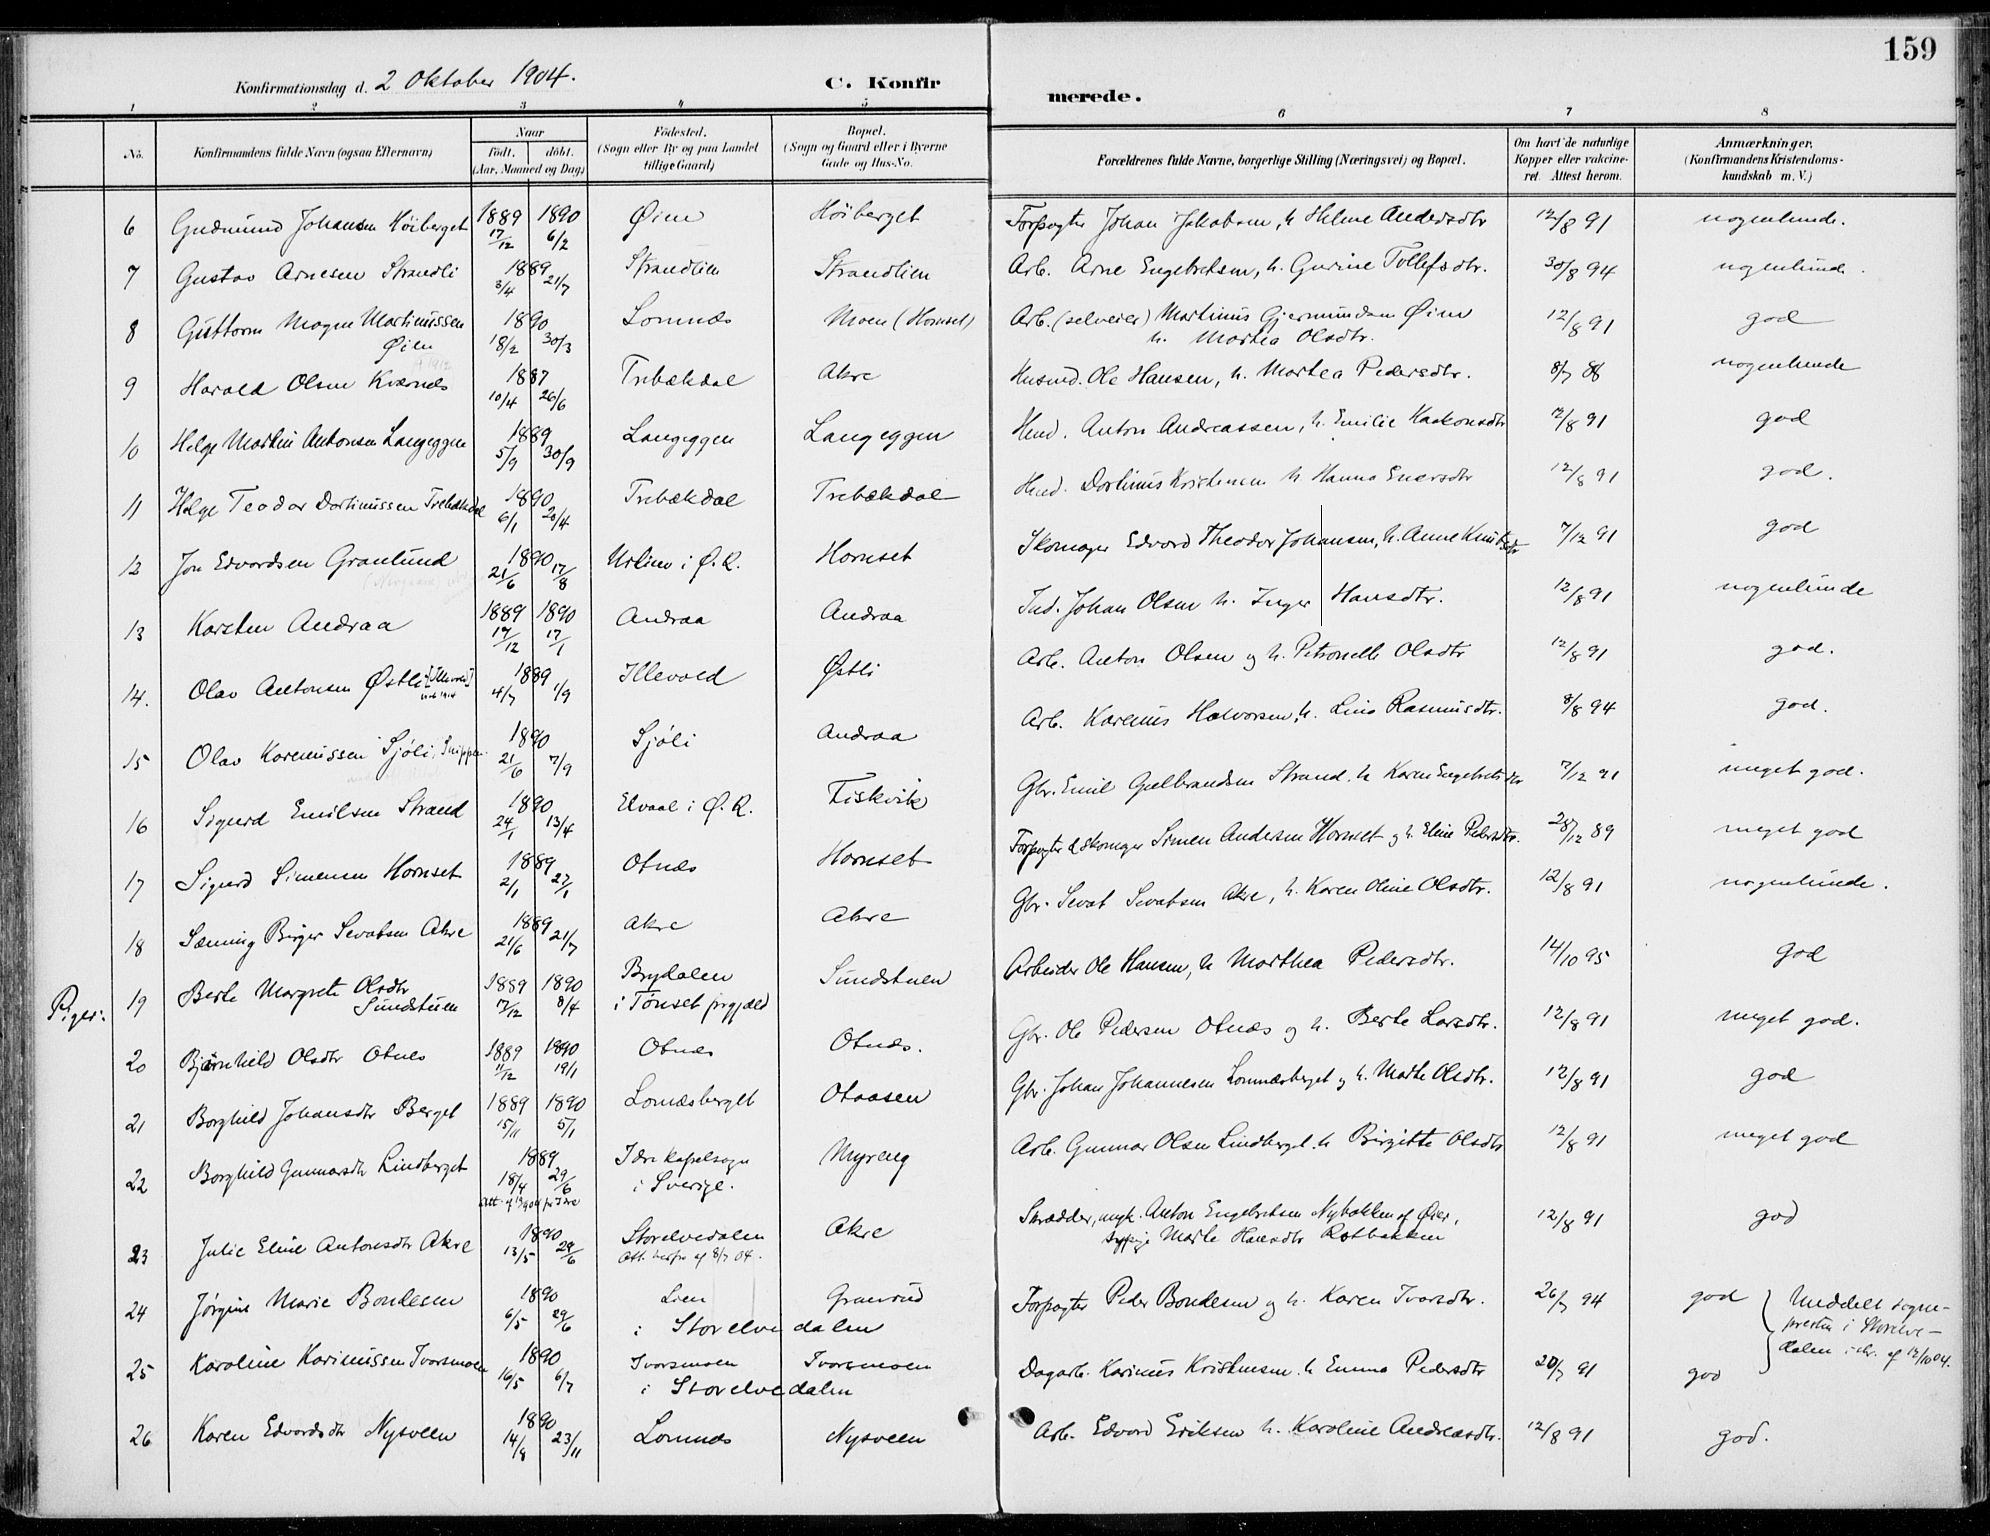 159
Konfirmationsdag d. 2 Oktober 1904.
C. Konfirmerede.
1 2 3 4 5 6 7 8
No. Konfirmandens fulde Navn (ogsaa Efternavn) Naar født. døbt. (Aar, Maaned og Dag) Fødested. (Sogn eller By og paa Landet tillige Gaard) Bopæl. (Sogn og Gaard eller i Byerne Gade og Hus-No. Forældrenes fulde Navne, borgerlige Stilling (Næringsvei) og Bopæl. Om havt de naturlige Kopper eller vakcineret. Attest herom. Anmærkninger. (Konfirmandens Kristendomskundskab m. V.)
6 Gudmund Johansen Höiberget 1889 17/12 1890 6/2 Øien Höiberget Forpagter Johan Jakobsen, h. Helene Andersdtr 12/8 91 nogenlunde.
7 Gustav Arnesen Strandli 1889 3/4 21/7 Strandlien Strandlien Arb. Arne Engebretsen, h. Gurine Tollefsdtr. 30/8 94 nogenlunde.
8 Guttorm Magne Martinussen Øien 1890 18/2 30/3 Lomnæs Moen (Hornset) Arb. (selveier) Martinus Gjermundsen Øien h. Martea Olsdtr. 12/8 91 god
9 Harald Olsen Kværnes 1887 10/4 26/6 Trebækdal Akre Husmd. Ole Hansen, h. Martea Pedersdtr. 8/7 88 nogenlunde
10 Helge Martin Antonsen Langeggen 1889 5/9 30/9 Langeggen Langeggen Hmd. Anton Andreassen, h. Emilie Haakonsdtr 12/8 91 god
11 Helge Teodor Dortinussen Trebækdal 1890 6/1 20/4 Trebækdal Trebækdal Hmd. Dortinus Kristensen h Hanna Enersdtr 12/8 91 god.
12 Jon Edvardsen Granlund 1890 21/6 17/8 i Ø. R. Hornset Skomager Edvard Theodor Johansen, h. Anne Knutsdtr 7/12 91 god
13 Karsten Andraa 1889 14/12 1890 17/1 Andraa Andraa Ind. Johan Olsen h. Inger Hansdtr. 12/8 91 nogenlunde
14. Olav Antonsen Østli [Illevold] 1889 4/7 1/9 Illevold Østli Arb. Anton Olsen og h. Petronelle Olsdtr 12/8 91 god.
15 Olav Karenussen Sjöli, 1890 21/6 7/9 Sjöli Andraa Arb. Karenus Halvorsen, h. Lina Rasmusdtr. 8/8 94 god.
16 Sigurd Emilsen Strand 1890 24/1 13/4 Elvaal i Ø. R. Fiskvik Gbr. Emil Gulbrandsen Strand. h Karen Engebretsdtr 7/12 91 meget god.
17 Sigurd Simensen Hornset 1889 2/1 27/1 Otnæs Hornset Forpagter & skomager Simen Andersen Hornset og h. Eline Pedersdtr. 28/12 89 meget god
18 Sæming Birger Sevatsen Akre 1889 21/6 21/7 Akre Akre Gbr. Sevat Sevatsen Akre, h. Karen Oline Olsdtr. 12/8 91 nogenlunde.
Piger:
19 Berte Margrete Olsdtr Sundstuen 1889 12/12 1890 8/4 Brydalen i Tönset prgjæld Sundstuen Arbeider Ole Hansen, h Marthea Pedersdtr. 14/10 95 god
20 Bjørnhild Olsdtr Otnes 1889 11/12 1890 19/1 Otnæs Otnæs. Gbr. Ole Pedersen Otnæs og h. Berte Larsdtr. 12/8 91 meget god.
21 Borghild Johansdtr Berget 1889 15/11 1890 5/1 Lomnæsberget Otaasen Gbr. Johan Johannesen Lomnæsberget og h. Marte Olsdtr. 12/8 91 god
22 Borghild Gunnarsdtr Lindberget 1889 18/4 29/6 Idre kapelsogn i Sverige. Myreng Arb. Gunnar Olsen Lindberget. h Birgitte Olsdtr 12/8 91 meget god
23 Julie Eline Antonsdtr Akre 1890 13/5 29/6 Storelvedalen Att. herfra af 8/7 04. Akre Skrædder, ungk. Anton Engebretsen Nybakken af Øier, Marte Hansdtr Rotbakken 12/8 91 god
24 Jørgine Marie Bondesen 1890 6/5 29/6 Lien Granrud i Storelvedalen Forpagter Peder Bondesen og h. Karen Ivarsdtr. 26/7 94 god Meddelt sogne-
presten i Storelve-
dalen i skr. af 12/10 04.
25 Karoline Karinussen Ivarsmoen 1890 16/5 6/7 Ivarsmoen Ivarsmoen i Storelvedalen Dagarb. Karinus Kristensen. h Emma Pedersdtr 20/7 91 god
26 Karen Edvardsdtr Nysveen 1890 14/8 23/11 Lomnæs Nysveen Arb. Edvard Eriksen h. Karoline Andreasdtr. 12/8 91 god.